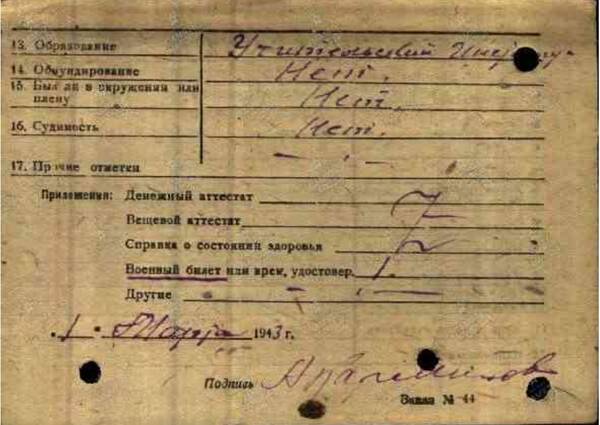 13. Образование Учительский Инст
14. Обмундирование Нет.
15. Был ли в окружении или
плену Нет.
16. Судимость Нет.
17. Прочие отметки — , —
Приложения: Денежный аттестат
Вещевой аттестат
Справка о состоянии здоровья
Военный билет или врем. удостовер. 1.
Другие — , —
„1" Марта 1943 г.
Подпись
Заказ № 44